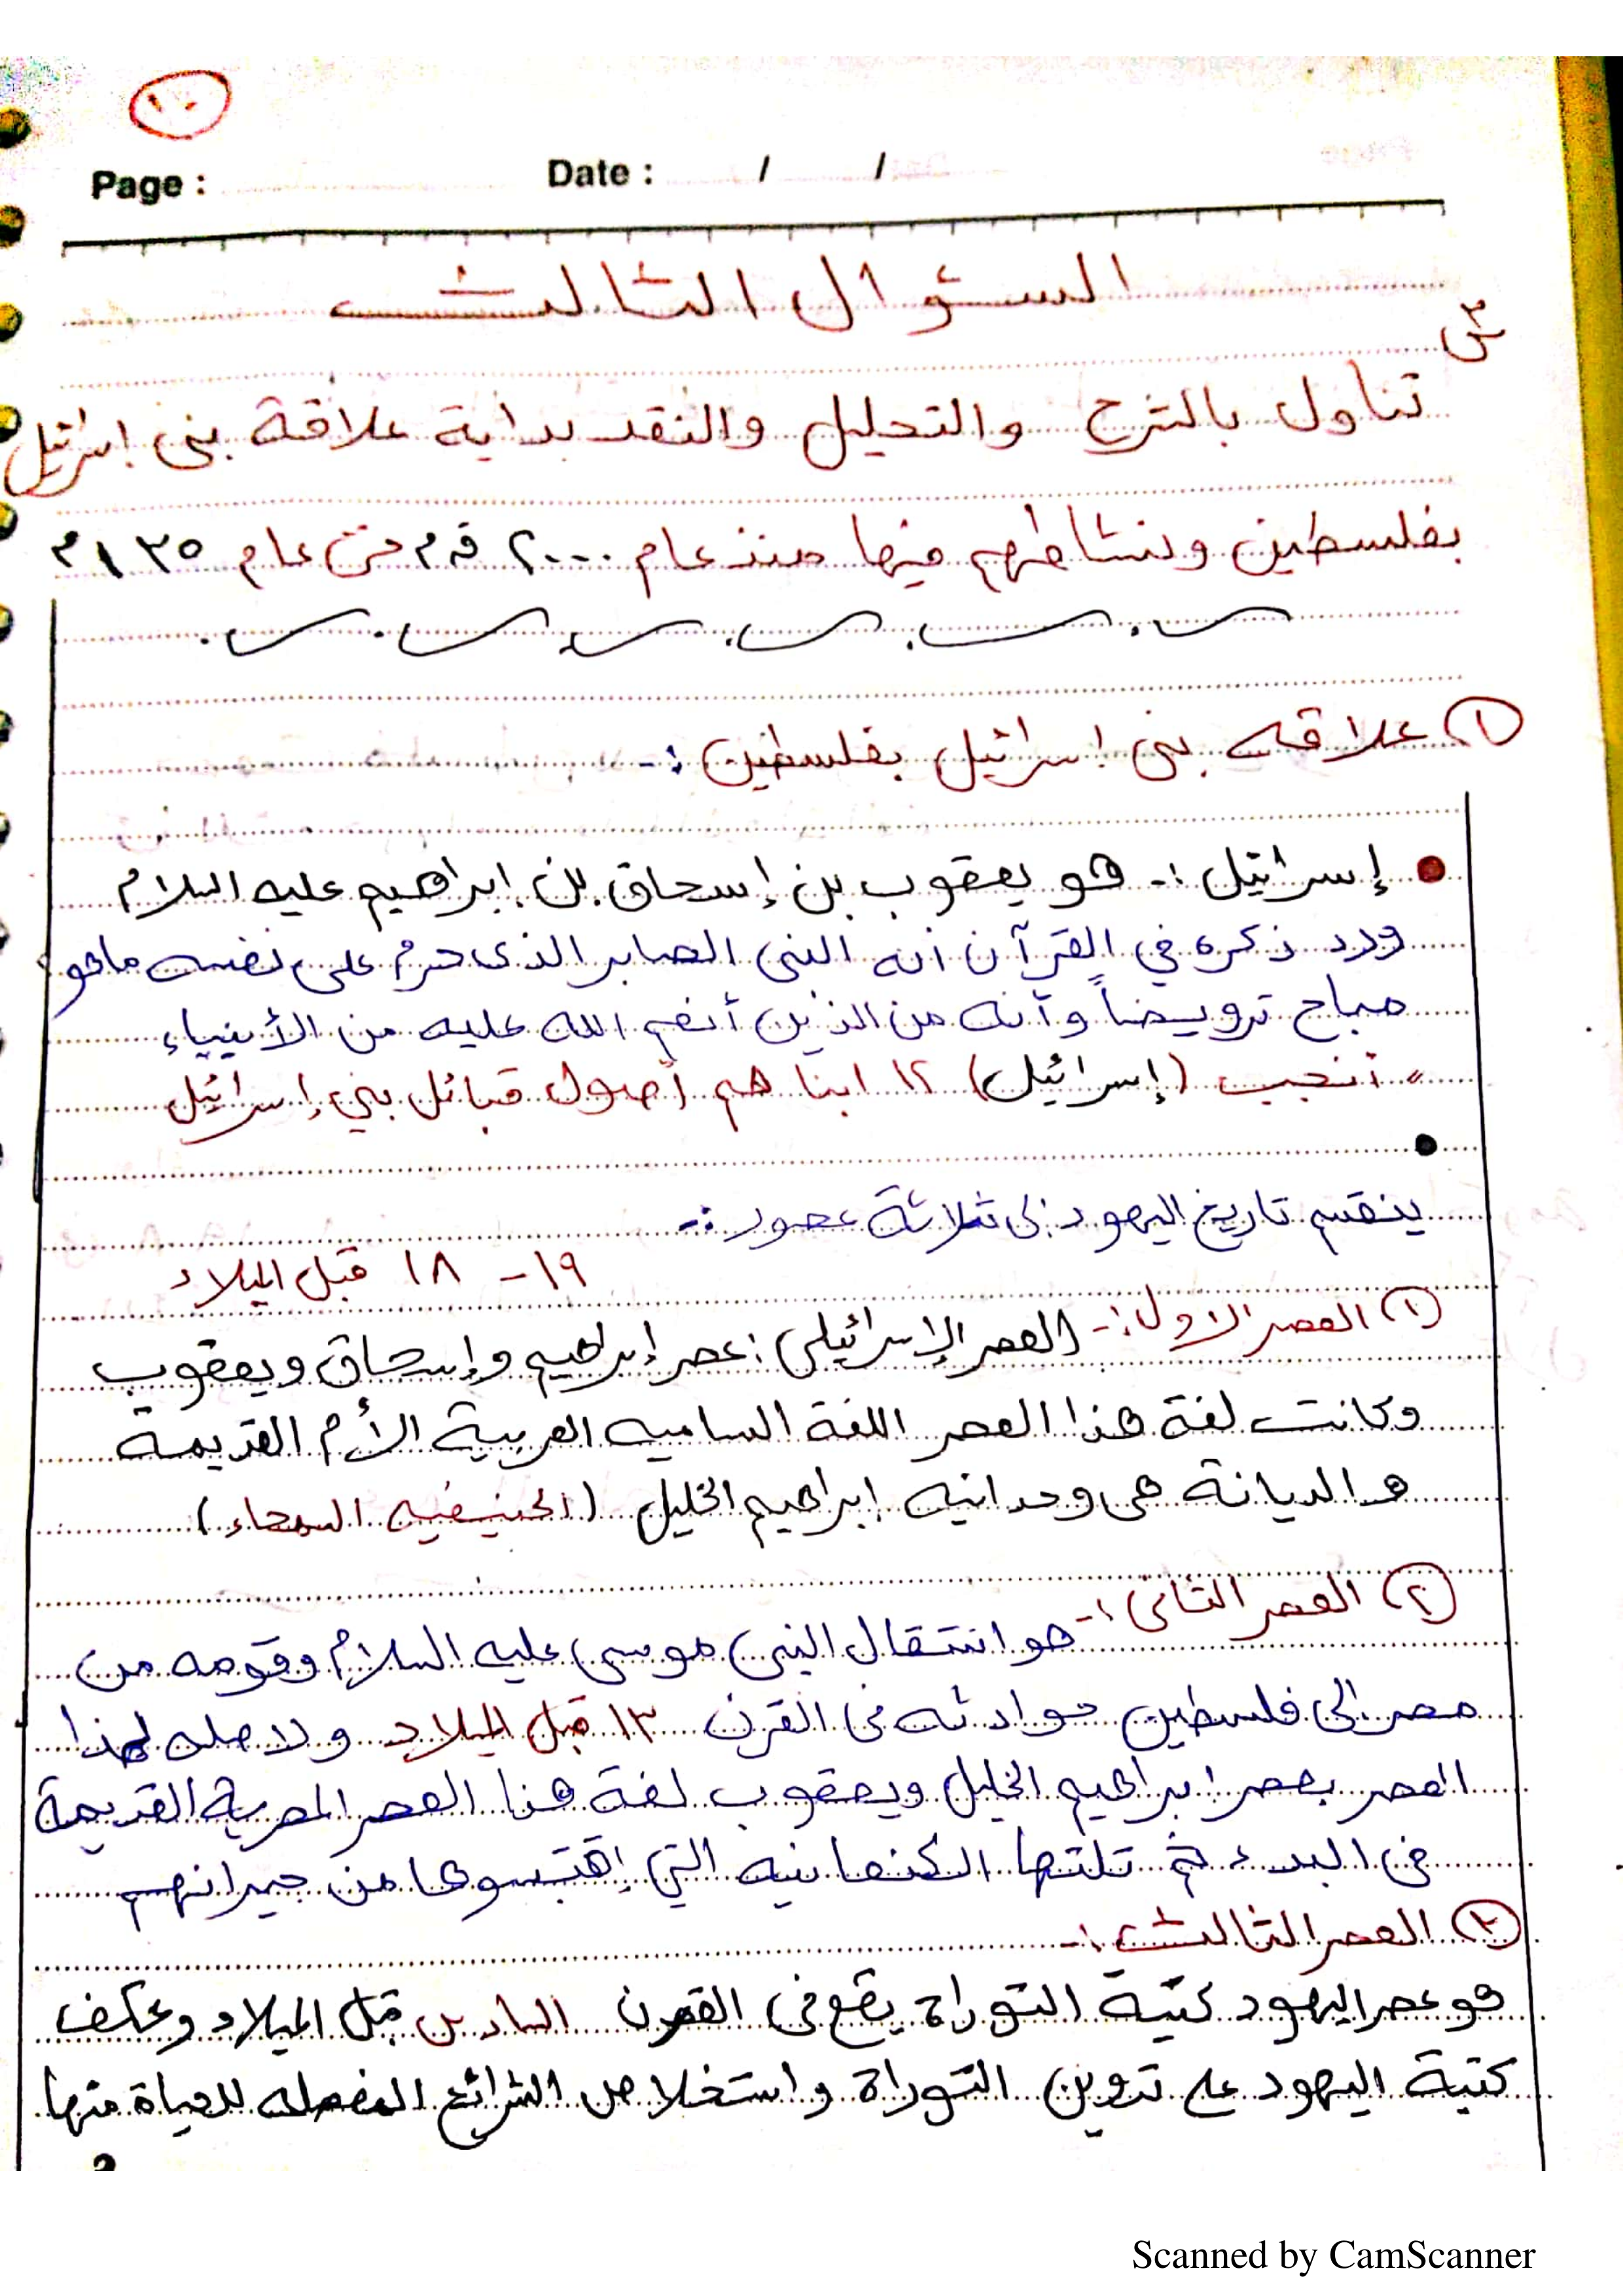 ١٠
Page :
Date : / /
السؤال الثالث
س٣
تناول بالشرح والتحليل والنقد بداية علاقة بنى اسرائيل
بفلسطين ونشاطهم فيها منذ عام ٢٠٠٠ ق.م حتى عام ١٣٥ م
١ علاقه بنى اسرائيل بفلسطين :-
• إسرائيل :- هو يعقوب بن إسحاق بن ابراهيم عليه السلام
ورد ذكره في القرآن أنه النبى الصابر الذى حرم على نفسه ما هو
مباح ترويضاً وأنه من الذين أنعم الله عليه من الأنبياء
" أنجب (إسرائيل) ١٢ ابنا هم أصول قبائل بني إسرائيل
•
ينقسم تاريخ اليهود إلى ثلاثة عصور :-
١٩ - ١٨ قبل الميلاد
١ العصر الاول :- (العصر الإسرائيلى) : عصر إبراهيم وإسحاق ويعقوب
وكانت لغة هذا العصر اللغة الساميه العربية الأم القديمة
والديانة هى وحدانيه ابراهيم الخليل (الحنيفيه السمحاء)
٢ العصر الثانى :- هو انتقال النبى موسى عليه السلام وقومه من
مصر إلى فلسطين حوادثه فى القرن ١٣ قبل الميلاد ولا صله لهذا
العصر بعصر ابراهيم الخليل ويعقوب لغة هذا العصر المصرية القديمة
فى البدء ثم تلتها الكنعانيه التي إقتبسوها من جيرانهم
٣ العصر الثالث :-
هو عصر اليهود كتبة التوراة يقع فى القرن السادس قبل الميلاد وعكف
كتبة اليهود على تدوين التوراة واستخلاص الشرائع المفصله للحياة منها
Scanned by CamScanner